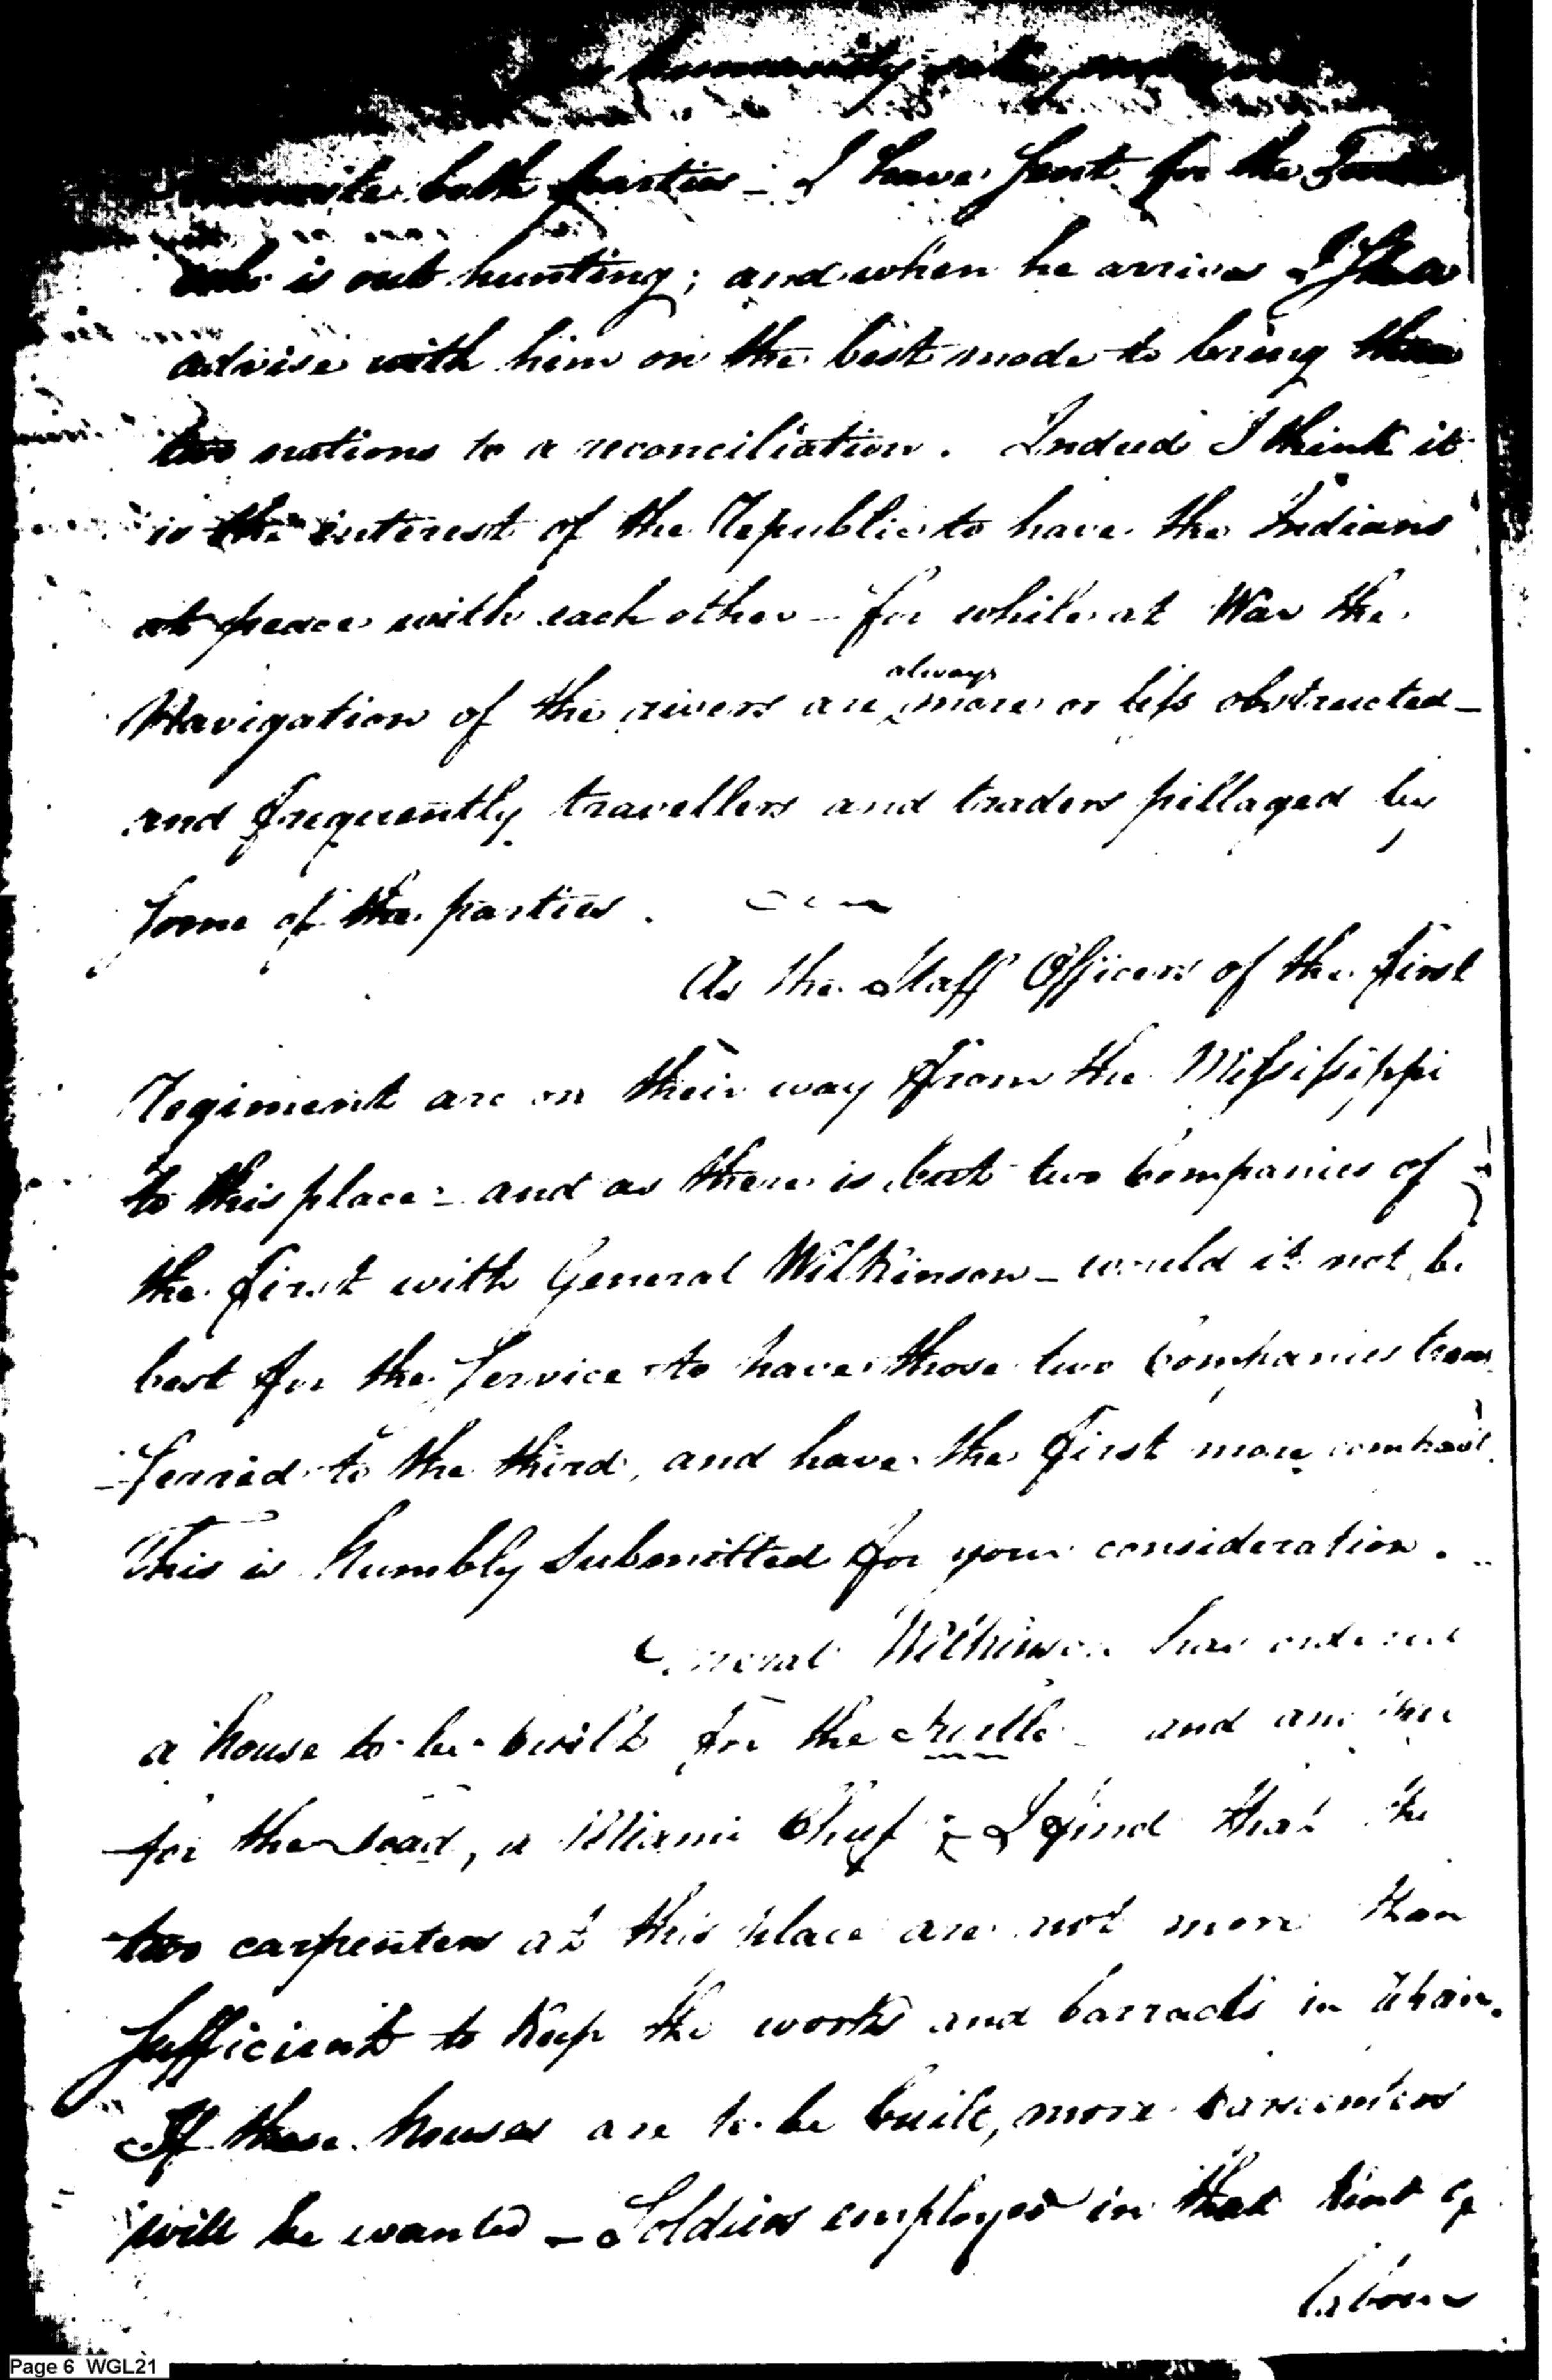 humanity
both parties – I have sent for the
is out hunting; and when he arrives I
advise with him on the best mode to bring
two nations to a reconciliation. Indeed I think it
is the interest of the Republic to have the Indians
at peace with each other – for while at War the
Navigation of the rivers are always more or less obstructed –
and frequently travellers and traders pillaged by
some of the parties.
As the Staff Officers of the first
Regiment are on their way from the Missisippi
to this place – and as there is but two Companies of
the first with General Wilkinson – would it not be
best for the Service to have those two Companies trans
-ferred to the third, and have the first more compact.
This is humbly Submitted for your consideration.
General Wilkinson has ordered
a house to be built for the Turtle – and another
for the Toad, a Miami Chief; I find that the
two carpenters at this place are not more than
sufficient to keep the works and barracks in repair.
If these houses are to be built, more carpenters
will be wanted – Soldiers employed in that kind of
labour
Page 6 WGL21